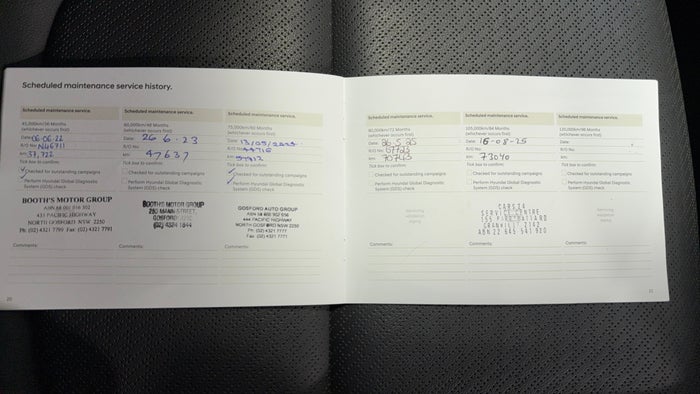 Scheduled maintenance service history.
Scheduled maintenance service.
45,000km/36 Months
(whichever occurs first)
Date: 06.06.22
R/O No: N46711
km: 37,722
Tick box to confirm:
Checked for outstanding campaigns
Perform Hyundai Global Diagnostic
System (GDS) check
BOOTH'S MOTOR GROUP
ABN 68 001 516 502
433 PACIFIC HIGHWAY
NORTH GOSFORD NSW 2250
Ph: (02) 4321 7799 Fax: (02) 4321 7791
Comments:
20
Scheduled maintenance service.
60,000km/48 Months
(whichever occurs first)
Date: 26 6 23
R/O No:
km: 47637
Tick box to confirm:
Checked for outstanding campaigns
Perform Hyundai Global Diagnostic
System (GDS) check
BOOTHS MOTOR GROUP
280 MANN STREET,
GOSFORD
(02) 4324 1844
Comments:
Scheduled maintenance service.
75,000km/60 Months
(whichever occurs first)
Date: 13/05/2025
R/O No:
km:
Tick box to confirm:
Checked for outstanding campaigns
Perform Hyundai Global Diagnostic
System (GDS) check
GOSFORD AUTO GROUP
PACIFIC HIGHWAY
NORTH GOSFORD NSW 2250
Ph: (02) 4321 7777
Fax: (02) 4321 7771
Comments:
Scheduled maintenance service.
90,000km/72 Months
(whichever occurs first)
Date:
R/O No:
km:
Tick box to confirm:
Checked for outstanding campaigns
Perform Hyundai Global Diagnostic
System (GDS) check
Servicing
stamp
Comments:
Scheduled maintenance service.
105,000km/84 Months
(whichever occurs first)
Date: 15-08-25
R/O No:
km: 73040
Tick box to confirm:
Checked for outstanding campaigns
Perform Hyundai Global Diagnostic
System (GDS) check
SERVICE CENTRE
ABN 22 645 541 920
Comments:
Scheduled maintenance service.
120,000km/96 Months
(whichever occurs first)
Date:
R/O No:
km:
Tick box to confirm:
Checked for outstanding campaigns
Perform Hyundai Global Diagnostic
System (GDS) check
Servicing
stamp
Comments:
21